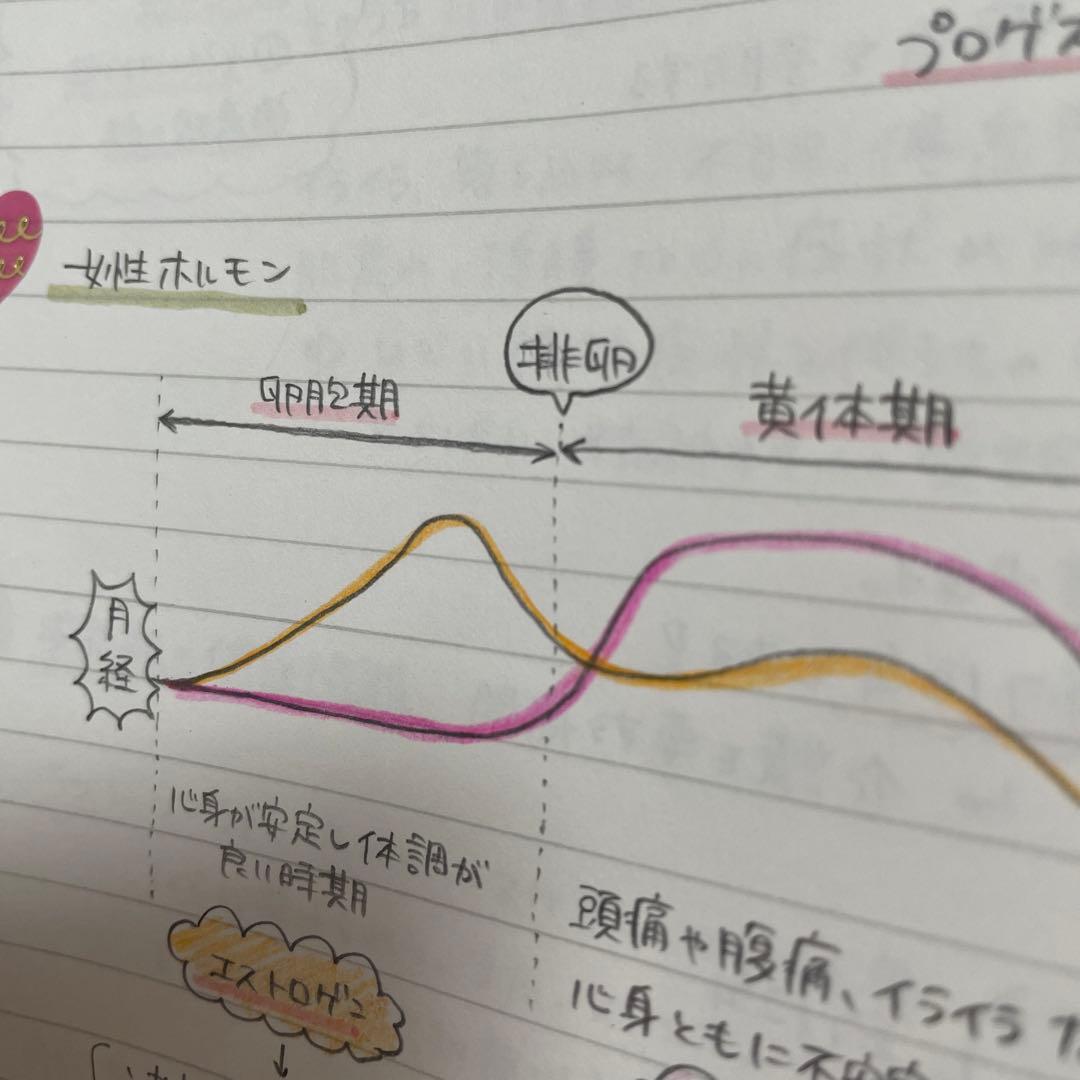 プロゲス
女性ホルモン
排卵
卵胞期
黄体期
月経
心身が安定し体調が
良い時期
エストロゲン
頭痛や腹痛、イライラ
心身ともに不安定